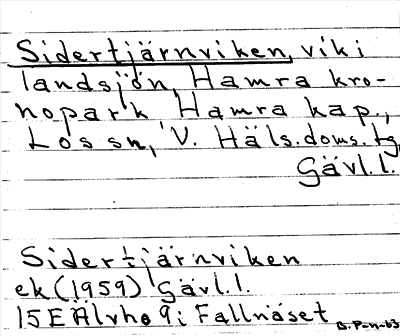 Sidertjärnviken, vik i
landsjön, Hamra kro-
nopark Hamra kap.,
Los sn, V. Häls. doms. tg,
Gävl. l.
Sidertjärnviken
ek (1959) Gävl. l.
15E Älvho 9i Fallnäset